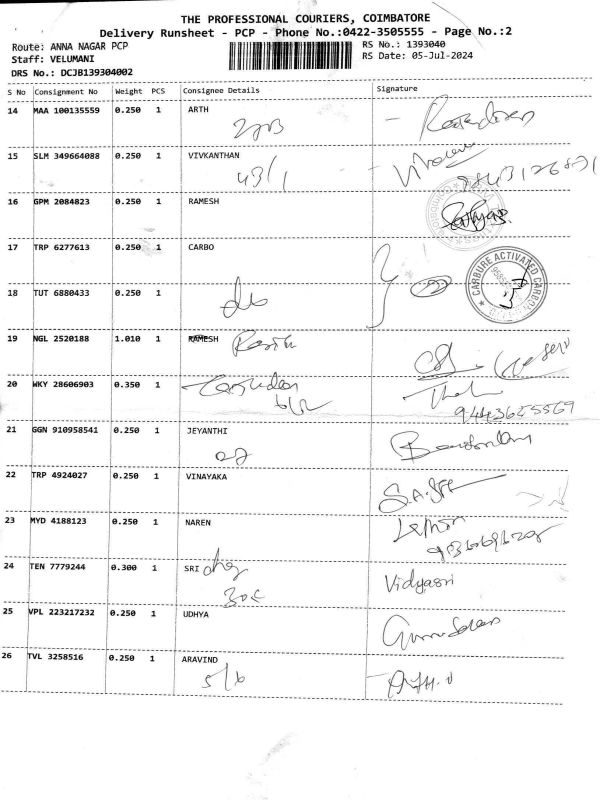 THE PROFESSIONAL COURIERS, COIMBATORE
Delivery Runsheet - PCP - Phone No.:0422-3505555 - Page No.:2
Route: ANNA NAGAR PCP
Staff: VELUMANI
DRS No.: DCJB139304002
RS No.: 1393040
RS Date: 05-Jul-2024
S No Consignment No Weight PCS Consignee Details Signature
14 MAA 100135559 0.250 1 ARTH
15 SLM 349664088 0.250 1 VIVKANTHAN
43/1
16 GPM 2084823 0.250 1 RAMESH
17 TRP 6277613 0.250 1 CARBO
CARBURE ACTIVATED CARBON
18 TUT 6880433 0.250 1
19 NGL 2520188 1.010 1 RAMESH
20 WKY 28606903 0.350 1
9443625569
21 GGN 910958541 0.250 1 JEYANTHI
22 TRP 4924027 0.250 1 VINAYAKA
23 MYD 4188123 0.250 1 NAREN
24 TEN 7779244 0.300 1 SRI
Vidyasri
25 VPL 223217232 0.250 1 UDHYA
26 TVL 3258516 0.250 1 ARAVIND
5/6